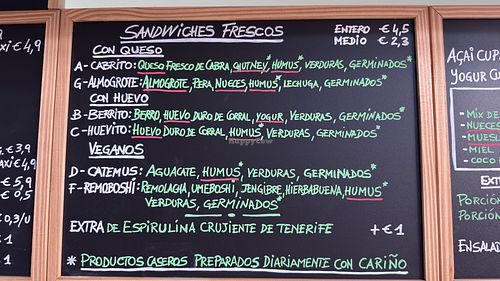 axi € 4,9
€ 3,9
axi € 4,9
€ 5,9
€ 0,5
€ 0,3/u
€ 1
SANDWICHES FRESCOS
ENTERO - € 4,5
MEDIO - € 2,3
CON QUESO
A - CABRITO: QUESO FRESCO DE CABRA, CHUTNEY*, HUMUS*, VERDURAS, GERMINADOS*
G - ALMOGROTE: ALMOGROTE, PERA, NUECES, HUMUS*, LECHUGA, GERMINADOS*
CON HUEVO
B - BERRITO: BERRO, HUEVO DURO DE CORRAL, YOGUR*, VERDURAS, GERMINADOS*
C - HUEVITO: HUEVO DURO DE CORRAL, HUMUS*, VERDURAS, GERMINADOS*
VEGANOS
D - CATEMUS: AGUACATE, HUMUS*, VERDURAS, GERMINADOS*
F - REMOBOSHI: REMOLACHA, UMEBOSHI, JENGIBRE, HIERBABUENA, HUMUS*
VERDURAS, GERMINADOS*
EXTRA DE ESPIRULINA CRUJIENTE DE TENERIFE + € 1
* PRODUCTOS CASEROS PREPARADOS DIARIAMENTE CON CARIÑO
HappyCow
AÇAI CUP
YOGUR CU
- MIX DE
- NUECES
- MUESL
- MIEL
- COCO
EXT
PORCIÓN
PORCIÓN
ENSALAD